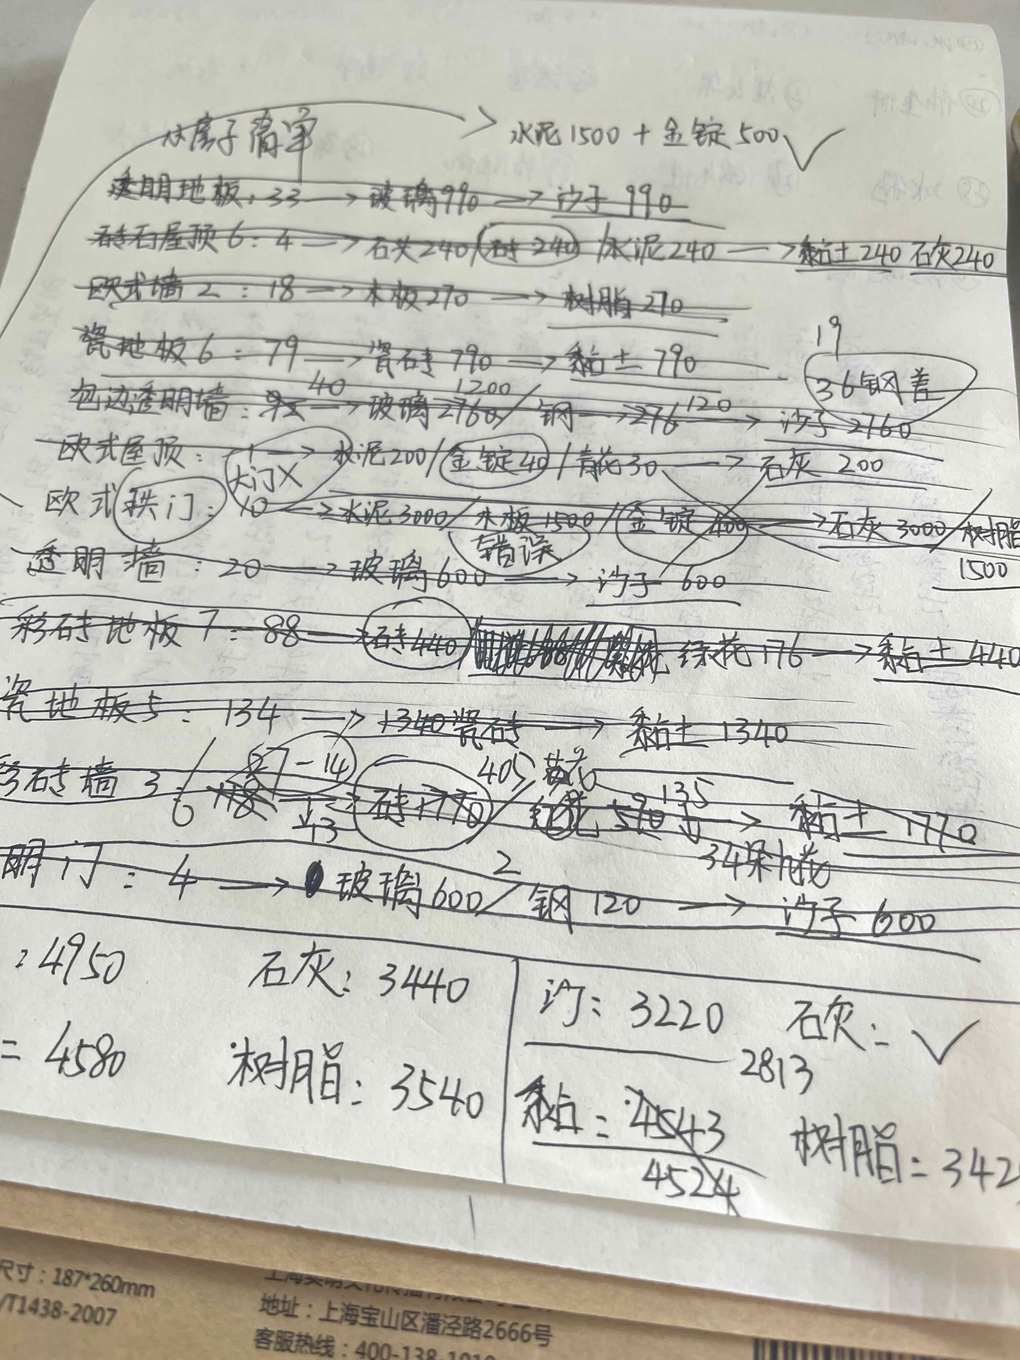 房子清单
水泥1500+金锭500✓
透明地板:33→玻璃990→沙子990
砖石屋顶6:4→石头240/砖240/水泥240→黏土240 石灰240
欧式墙2:18→木板270→树脂270
瓷地板6:79→瓷砖790→黏土790
19
36钢差
40 1200 120
包边透明墙:92→玻璃2760/钢→276→沙子2760
欧式屋顶:1→水泥200/金锭40/青花30→石灰200
大门X
欧式拱门:10→水泥3000/木板1500/金锭400→石灰3000/树脂
错误
1500
透明墙:20→玻璃600→沙子600
彩砖地板7:88→砖440/绿花176→黏土440
瓷地板5:134→1340瓷砖→黏土1340
27-14 405 135
砖墙3/6 118 13 砖1770/红花590→黏土1770
34朵九花
明门:4→玻璃600/钢120→沙子600
2
:4950 石灰:3440
=4580 树脂:3540
沙:3220 石灰:✓
2813
黏=4543
4524
树脂=342
尺寸:187*260mm
/T1438-2007
地址:上海宝山区潘泾路2666号
客服热线:400-138-1010